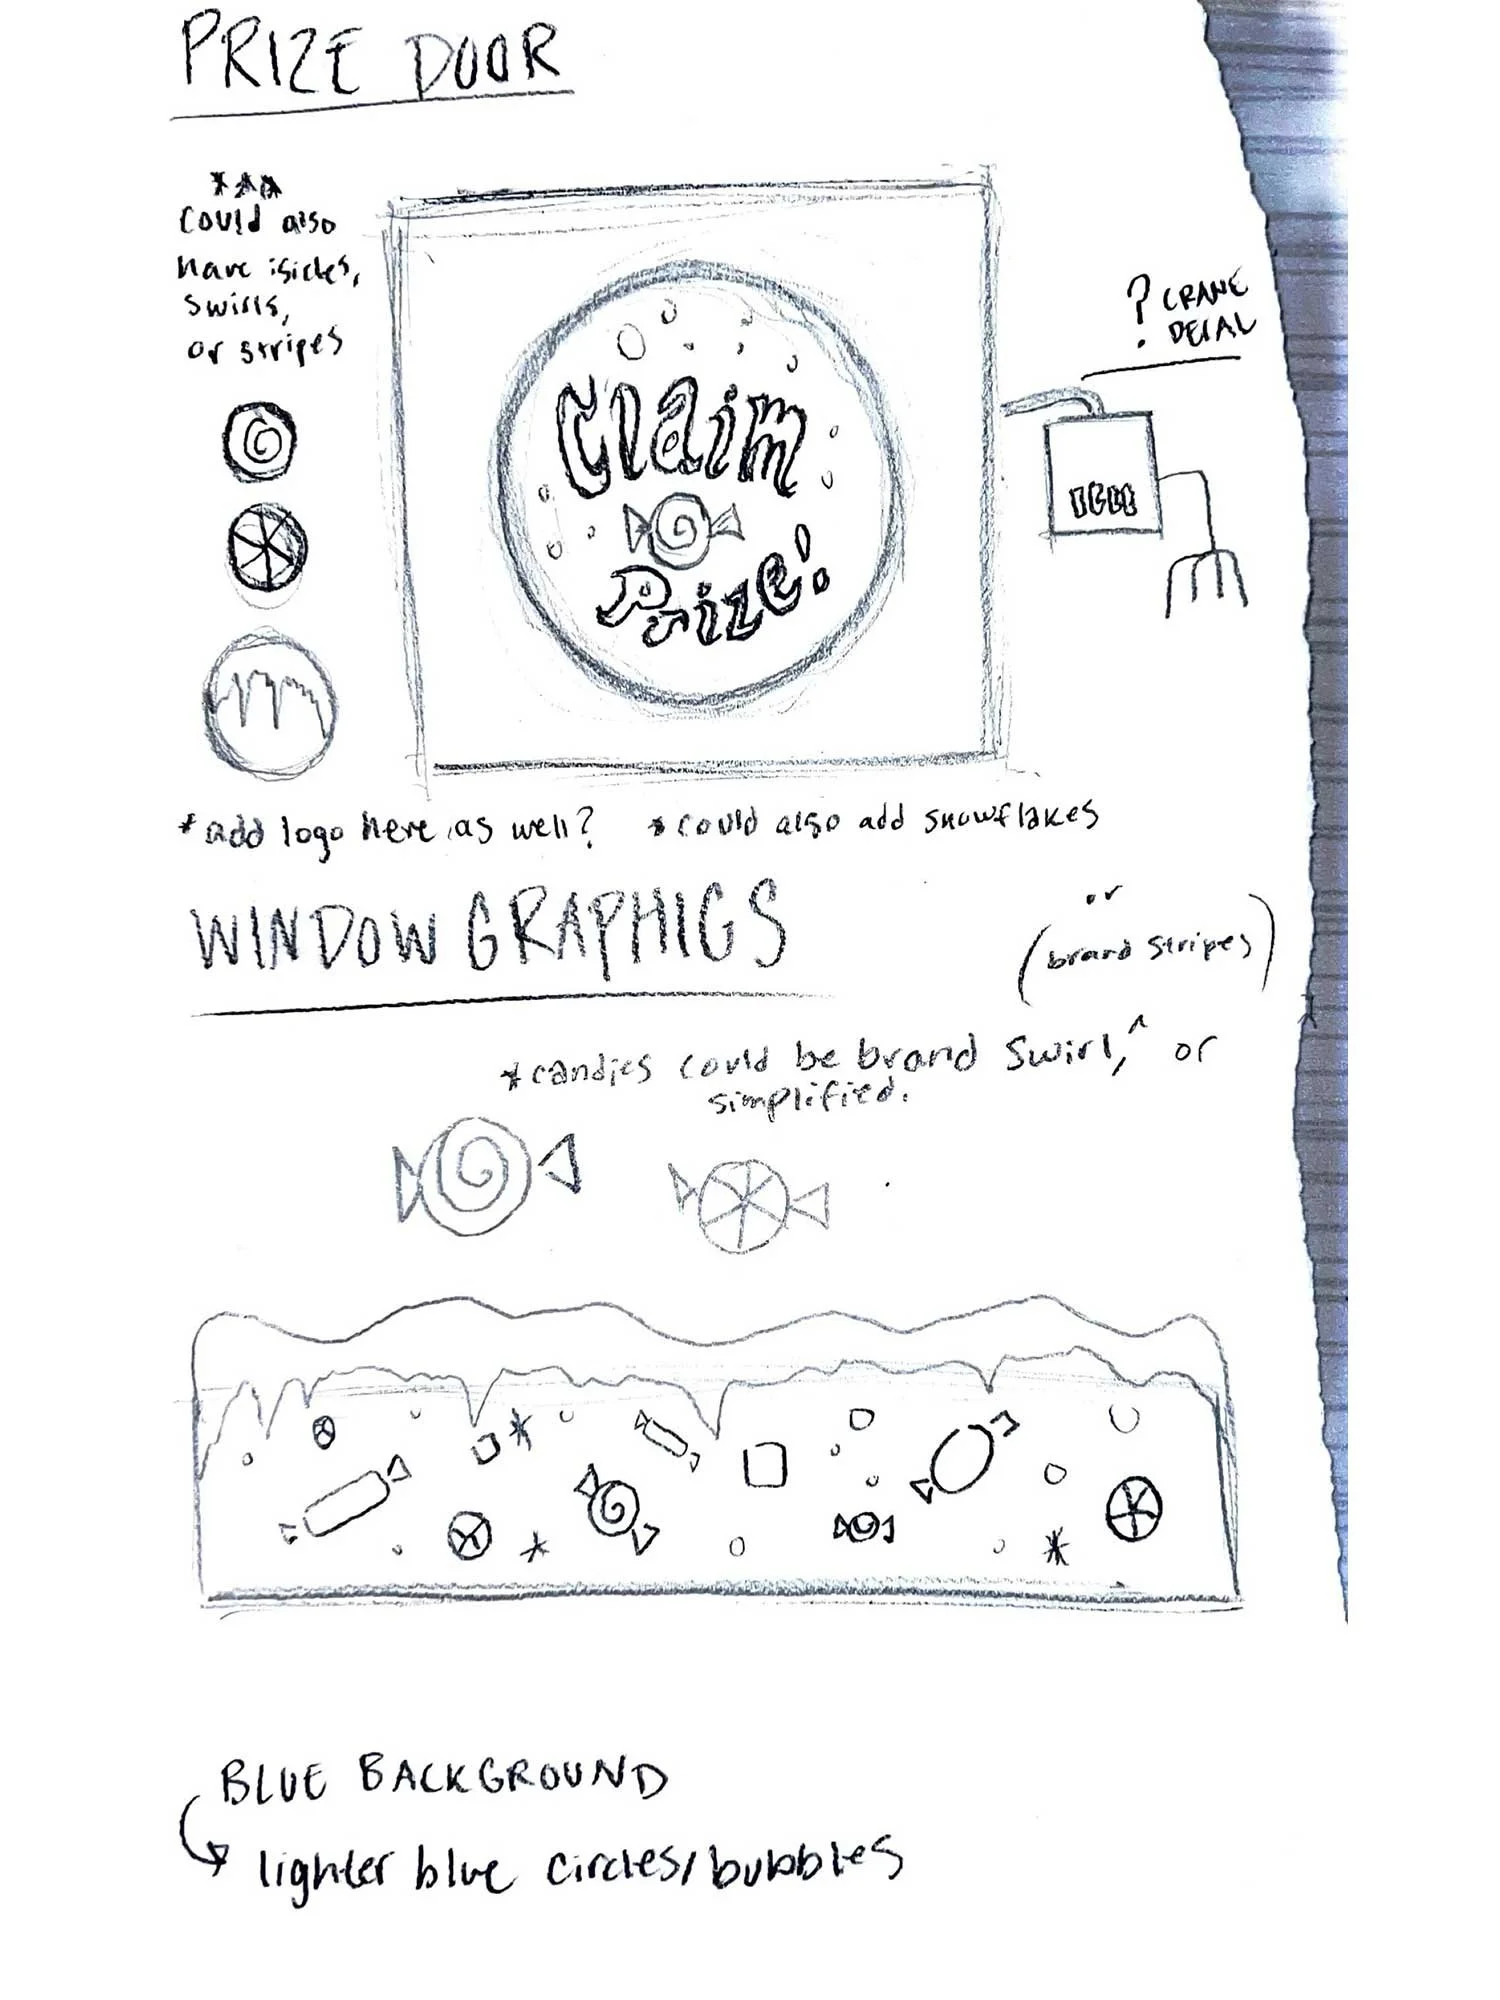 PRIZE DOOR
***
Could also
have isicles,
swirls,
or stripes
? CRANE
DECAL
Claim
Prize!
*add logo here as well? *could also add snowflakes
WINDOW GRAPHICS
or
(brand stripes)
*candies could be brand swirl,^ or
simplified.
BLUE BACKGROUND
lighter blue circles/bubbles